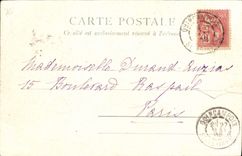 CARTE POSTALE
Ce côté est exclusivement réservé à l'adresse
Mademoiselle Durand Ruzias
15 Boulevard Raspail
Paris